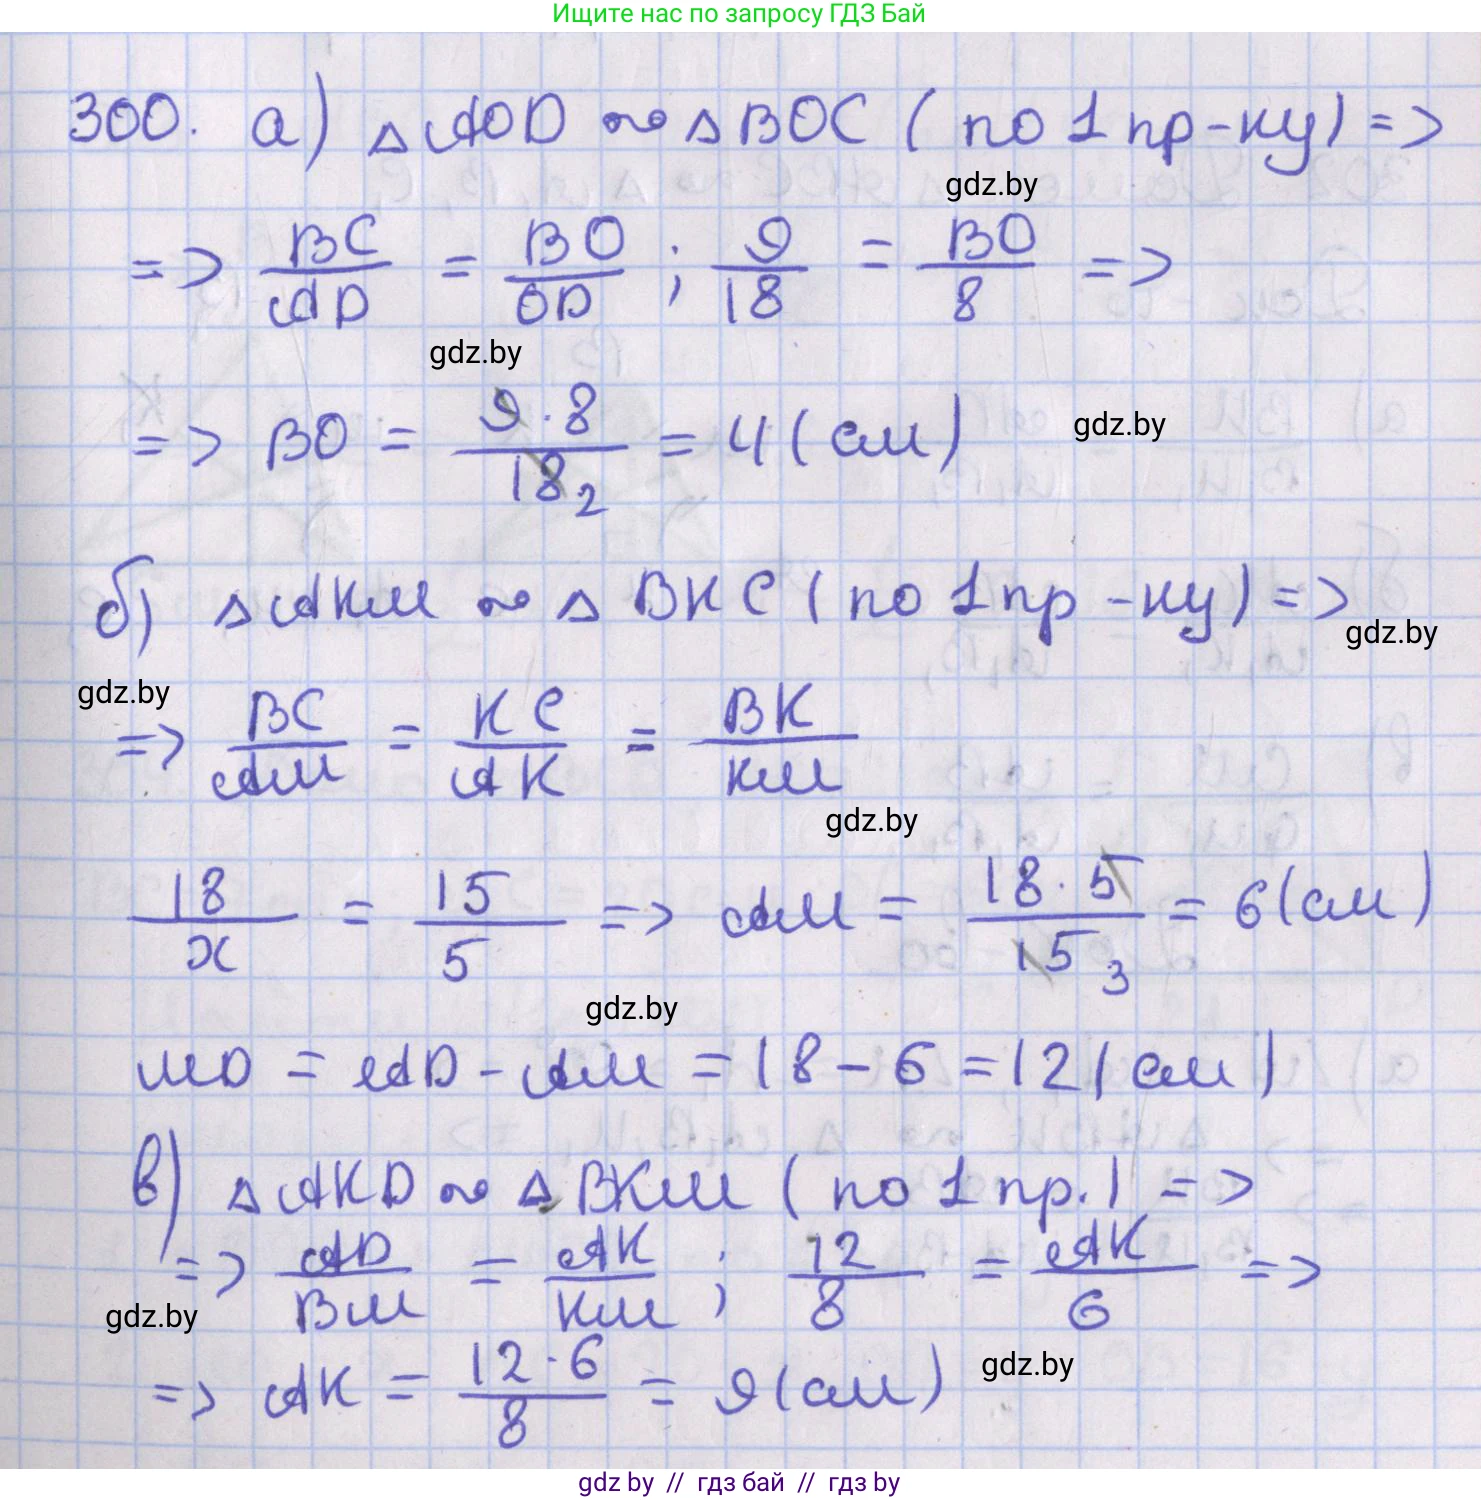 Ищите нас по запросу ГДЗ Бай
300. а) △AOD ∾ △BOC (по 1 пр-ку) =>
gdz.by
=> BC/AD = BO/OD ; 9/18 = BO/8 =>
gdz.by
=> BO = 9·8/18 2 = 4 (см)
gdz.by
б) △AKM ∾ △BKC (по 1 пр-ку) =>
gdz.by
gdz.by
=> BC/AM = KC/AK = BK/KM
gdz.by
18/x = 15/5 => AM = 18·5/15 3 = 6 (см)
gdz.by
MD = AD - AM = 18 - 6 = 12 (см)
в) △AKD ∾ △BKM (по 1 пр.) =>
=> AD/BM = AK/KM ; 12/8 = AK/6 =>
gdz.by
=> AK = 12·6/8 = 9 (см)
gdz.by
gdz by // гдз бай // гдз by